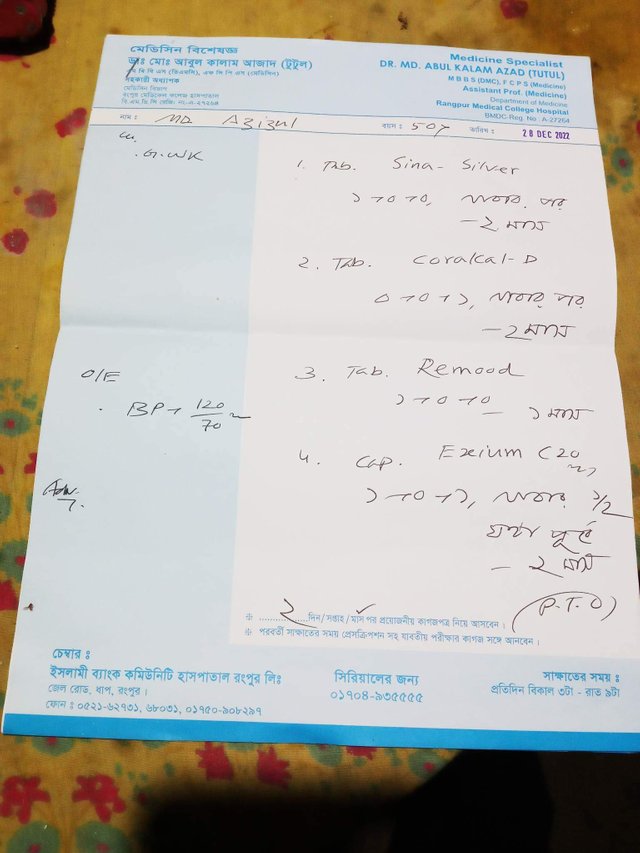 মেডিসিন বিশেষজ্ঞ
ডাঃ মোঃ আবুল কালাম আজাদ (টুটুল)
এম বি বি এস (ডিএমসি), এফ সি পি এস (মেডিসিন)
সহকারী অধ্যাপক
মেডিসিন বিভাগ
রংপুর মেডিকেল কলেজ হাসপাতাল
বি.এম.ডি.সি রেজি: নং-এ-২৭২৬৪
Medicine Specialist
DR. MD. ABUL KALAM AZAD (TUTUL)
M B B S (DMC), F C P S (Medicine)
Assistant Prof. (Medicine)
Department of Medicine
Rangpur Medical College Hospital
BMDC-Reg. No : A-27264
নাম : MD Azizul বয়স : 50y তারিখ : 28 DEC 2022
C/C
. G. WK
O/E
. BP → 120/70
Adv.
1. Tab. Sina - Silver
১ → ০ → ০, খাবার পর
- ২ মাস
2. Tab. Coralcal-D
০ → ০ → ১, খাবার পর
- ২ মাস
3. Tab. Remood
১ → ০ → ০ - ১ মাস
4. Cap. Exium (20
১ → ০ → ১, খাবার ১/২
ঘন্টা পূর্বে
- ২ মাস
(P.T.O)
※ ২ দিন/সপ্তাহ/মাস পর প্রয়োজনীয় কাগজপত্র নিয়ে আসবেন।
※ পরবর্তী সাক্ষাতের সময় প্রেসক্রিপশন সহ যাবতীয় পরীক্ষার কাগজ সঙ্গে আনবেন।
চেম্বার :
ইসলামী ব্যাংক কমিউনিটি হাসপাতাল রংপুর লিঃ
জেল রোড, ধাপ, রংপুর।
ফোন : ০৫২১-৬২৭৩১, ৬৮০৩১, ০১৭৫০-৯০৮২৯৭
সিরিয়ালের জন্য
০১৭০৪-৯৩৫৫৫৫
সাক্ষাতের সময় :
প্রতিদিন বিকাল ৩টা - রাত ৯টা